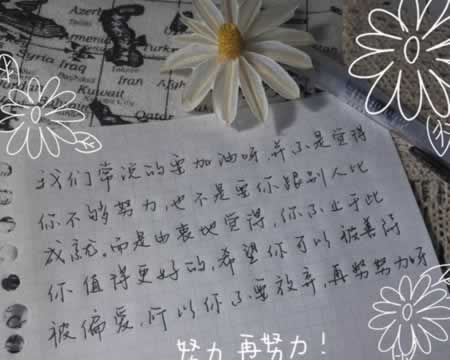 Azerb
Armenia
Azer.
Turkm
Syria
Iraq
Baghdad
Iran
Kuwait
Kuwait City
我们常说的要加油呀,并不是觉得
你不够努力,也不是要你跟别人比
成就。而是由衷地觉得,你不止于此
你值得更好的,希望你可以被善待
被偏爱,所以你不要放弃,再努努力呀
努力 再努力!